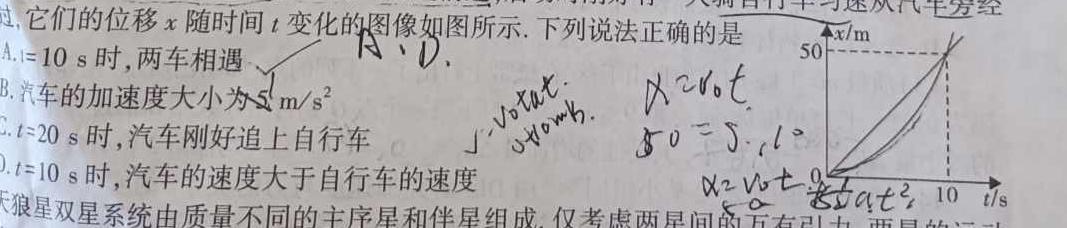 过,它们的位移 x 随时间 t 变化的图像如图所示. 下列说法正确的是
A、D.
A. t=10 s 时,两车相遇
B. 汽车的加速度大小为 5 m/s²
C. t=20 s 时,汽车刚好追上自行车
D. t=10 s 时,汽车的速度大于自行车的速度
天狼星双星系统由质量不同的主序星和伴星组成. 仅考虑两星间的万有引力
x=v₀t.
50=5·10
x=v₀t
x/m
50
0
10
t/s